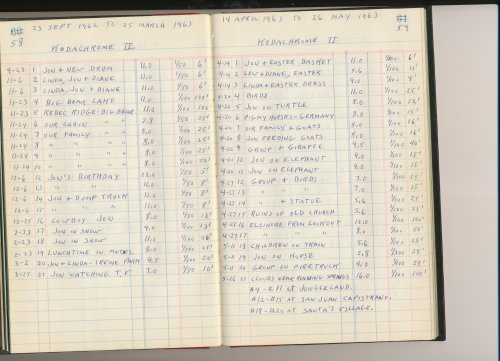 23 SEPT 1962 TO 25 MARCH 1963
58
KODACHROME II
9-23 1 JON + NEW DRUM 11.2 1/50 6'
11-6 2 LINDA, JON + DIANE 11.0 1/50 6'
11-6 3 LINDA, JON + DIANE 11.0 1/50 6'
11-23 4 BIG BEAR LAKE 11.0 1/100 100'
11-23 5 REBEL RIDGE-BIG BEAR 8.0 1/100 100'
11-23 6 OUR CABIN 2.8 1/50 25'
11-24 7 OUR FAMILY 8.0 1/100 25'
11-24 8 " " 8.0 1/100 25'
11-24 9 " " 8.0 1/100 25'
11-24 10 " " 8.0 1/100 25'
12-6 12 JON'S BIRTHDAY 22.0 1/50 5'
12-6 13 " " 11.0 1/50 8'
12-6 14 JON + DUMP TRUCK 11.0 1/50 8'
12-6 15 " " " 11.0 1/50 8'
12-25 16 COWBOY JON 8.0 1/50 12'
2-23 17 JON IN SNOW 4.0 1/100 13'
2-23 18 JON IN SNOW 11.0 1/100 26'
2-23 19 LUNCHTIME IN MNTNS. 8.0 1/100 20'
3-2 20 JON + LINDA - IRVINE PARK 9.5 1/100 20'
3-25 21 JON WATCHING T.V. 7.0 1/50 10'
14 APRIL 1963 TO 26 MAY 1963
59
KODACHROME II
4-14 1 JON + EASTER BASKET 11.0 1/100 6'
4-14 2 LEW + DIANE, EASTER 5.6 1/100 11'
4-14 3 LINDA + EASTER DRESS 11.0 1/100 9'
4-20 4 BIRDS 11.0 1/100 8'
4-20 5 JON ON TURTLE 8.0 1/100 12'
4-20 6 PIGMY HORSES-GERMANY 8.0 1/100 15'
4-20 7 OUR FAMILY + GOATS 8.0 1/100 15'
4-20 8 JON FEEDING GOATS 8.0 1/100 16'
4-20 9 GROUP + GIRAFFE 9.5 1/100 40'
4-20 10 JON ON ELEPHANT 4.0 1/100 15'
4-20 11 JON ON ELEPHANT 4.0 1/100 15'
4-27 12 GROUP + BIRDS 7.0 1/100 15'
4-27 13 " " 7.0 1/100 15'
4-27 14 " + STATUE 5.6 1/100 25'
4-27 15 RUINS OF OLD CHURCH 5.6 1/100 25'
4-27 16 ELSINORE FROM LOOKOUT 12.0 1/100 100'
4-27 17 " " " 8.0 1/100 50'
5-11 18 CHILDREN ON TRAIN 5.6 1/100 25'
5-11 19 JON ON HORSE 2.8 1/100 25'
5-11 20 GROUP ON FIRETRUCK 4.0 1/100 25'
5-26 21 CLOUDS NEAR RUNNING SPRINGS 16.0 1/100 100'
#4-#11 AT JUNGLELAND.
#12-#15 AT SAN JUAN CAPISTRANO.
#18-#20 AT SANTA'S VILLAGE.